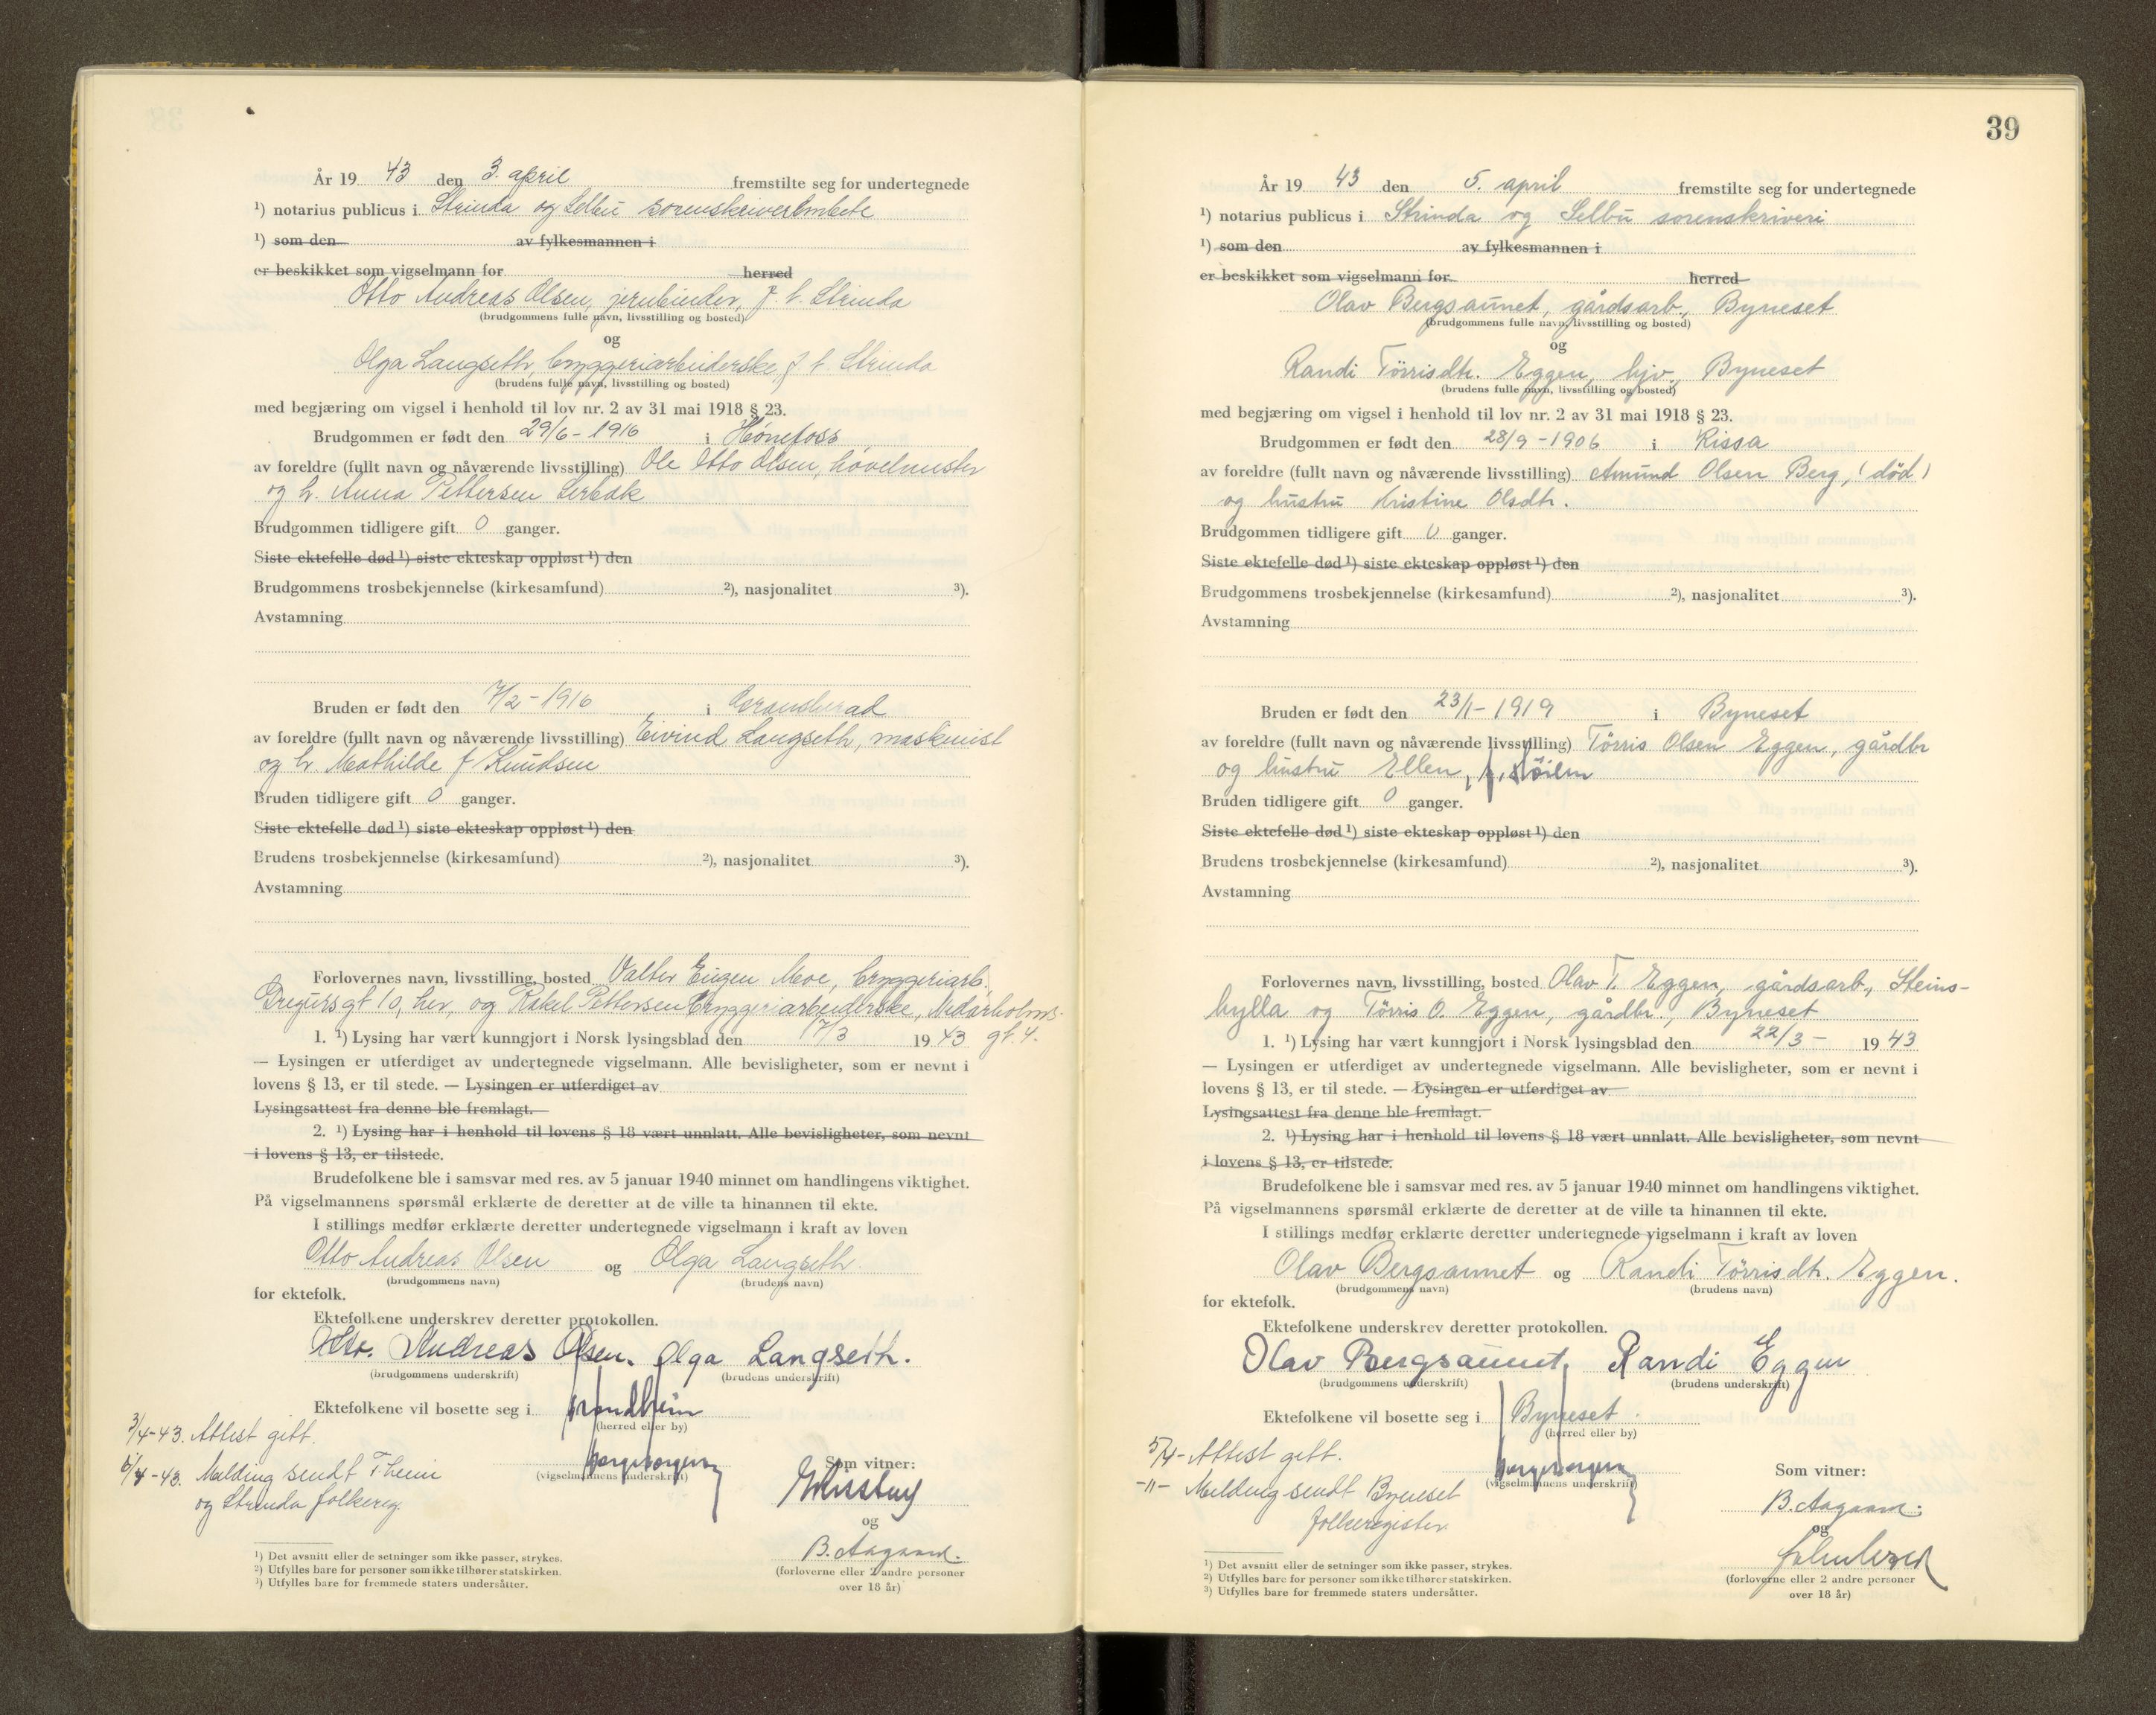 År 19 43 den 3. april fremstilte seg for undertegnede
¹) notarius publicus i Strinda og Selbu sorenskriverembete
¹) som den av fylkesmannen i
er beskikket som vigselmann for herred
Otto Andreas Olsen, jernbinder, f. t. Strinda
(brudgommens fulle navn, livsstilling og bosted)
og
Olga Langseth, bryggeriarbeiderske, f. t. Strinda
(brudens fulle navn, livsstilling og bosted)
med begjæring om vigsel i henhold til lov nr. 2 av 31 mai 1918 § 23.
Brudgommen er født den 29/6-1916 i Hønefoss
av foreldre (fullt navn og nåværende livsstilling) Ole Otto Olsen, høvelmester
og h. Anna Pettersen
Brudgommen tidligere gift 0 ganger.
Siste ektefelle død ¹) siste ekteskap oppløst ¹) den
Brudgommens trosbekjennelse (kirkesamfund) ²), nasjonalitet ³).
Avstamning
Bruden er født den 7/2-1916 i Gransherad
av foreldre (fullt navn og nåværende livsstilling) Eivind Langseth, maskinist
og h. Mathilde f Knudsen
Bruden tidligere gift 0 ganger.
Siste ektefelle død ¹) siste ekteskap oppløst ¹) den
Brudens trosbekjennelse (kirkesamfund) ²), nasjonalitet ³).
Avstamning
Forlovernes navn, livsstilling, bosted Valter Eugen Moe, bryggeriarb.,
gt 10, her, og Rakel Pettersen bryggeriarbeiderske, Nidarholms-
1. ¹) Lysing har vært kunngjort i Norsk lysingsblad den 17/3 19 43 gt. 4.
— Lysingen er utferdiget av undertegnede vigselmann. Alle bevisligheter, som er nevnt i
lovens § 13, er til stede. — Lysingen er utferdiget av
Lysingsattest fra denne ble fremlagt.
2. ¹) Lysing har i henhold til lovens § 18 vært unnlatt. Alle bevisligheter, som nevnt
i lovens § 13, er tilstede.
Brudefolkene ble i samsvar med res. av 5 januar 1940 minnet om handlingens viktighet.
På vigselmannens spørsmål erklærte de deretter at de ville ta hinannen til ekte.
I stillings medfør erklærte deretter undertegnede vigselmann i kraft av loven
Otto Andreas Olsen og Olga Langseth
(brudgommens navn) (brudens navn)
for ektefolk.
Ektefolkene underskrev deretter protokollen.
Otto. Andreas Olsen. Olga Langseth.
(brudgommens underskrift) (brudens underskrift)
Ektefolkene vil bosette seg i Trondheim
(herred eller by)
3/4-43. Attest gitt.
6/4-43. Melding sendt Th.eim
og Strinda folkereg.
(vigselmannens underskrift)
Som vitner:
og
B. Aagaard.
(forloverne eller 2 andre personer
over 18 år)
¹) Det avsnitt eller de setninger som ikke passer, strykes.
²) Utfylles bare for personer som ikke tilhører statskirken.
³) Utfylles bare for fremmede staters undersåtter.
39
År 19 43 den 5. april fremstilte seg for undertegnede
¹) notarius publicus i Strinda og Selbu sorenskriveri
¹) som den av fylkesmannen i
er beskikket som vigselmann for herred
Olav Bergsaunet, gårdsarb., Byneset
(brudgommens fulle navn, livsstilling og bosted)
og
Randi Törrisdtr. Eggen, hjv., Byneset
(brudens fulle navn, livsstilling og bosted)
med begjæring om vigsel i henhold til lov nr. 2 av 31 mai 1918 § 23.
Brudgommen er født den 28/9-1906 i Rissa
av foreldre (fullt navn og nåværende livsstilling) Amund Olsen Berg, (död)
og hustru Kristine Olsdtr.
Brudgommen tidligere gift 0 ganger.
Siste ektefelle død ¹) siste ekteskap oppløst ¹) den
Brudgommens trosbekjennelse (kirkesamfund) ²), nasjonalitet ³).
Avstamning
Bruden er født den 23/1-1919 i Byneset
av foreldre (fullt navn og nåværende livsstilling) Törris Olsen Eggen, gårdbr
og hustru Ellen, f.
Bruden tidligere gift 0 ganger.
Siste ektefelle død ¹) siste ekteskap oppløst ¹) den
Brudens trosbekjennelse (kirkesamfund) ²), nasjonalitet ³).
Avstamning
Forlovernes navn, livsstilling, bosted Olav T. Eggen, gårdsarb., Steins-
hylla og Törris O. Eggen, gårdbr., Byneset
1. ¹) Lysing har vært kunngjort i Norsk lysingsblad den 22/3- 19 43
— Lysingen er utferdiget av undertegnede vigselmann. Alle bevisligheter, som er nevnt i
lovens § 13, er til stede. — Lysingen er utferdiget av
Lysingsattest fra denne ble fremlagt.
2. ¹) Lysing har i henhold til lovens § 18 vært unnlatt. Alle bevisligheter, som nevnt
i lovens § 13, er tilstede.
Brudefolkene ble i samsvar med res. av 5 januar 1940 minnet om handlingens viktighet.
På vigselmannens spørsmål erklærte de deretter at de ville ta hinannen til ekte.
I stillings medfør erklærte deretter undertegnede vigselmann i kraft av loven
Olav Bergsaunet og Randi Törrisdtr. Eggen.
(brudgommens navn) (brudens navn)
for ektefolk.
Ektefolkene underskrev deretter protokollen.
Olav Bergsaunet, Randi Eggen
(brudgommens underskrift) (brudens underskrift)
Ektefolkene vil bosette seg i Byneset.
(herred eller by)
5/4- Attest gitt.
-"- Melding sendt Byneset
folkeregister
(vigselmannens underskrift)
Som vitner:
B. Aagaard.
og
(forloverne eller 2 andre personer
over 18 år)
¹) Det avsnitt eller de setninger som ikke passer, strykes.
²) Utfylles bare for personer som ikke tilhører statskirken.
³) Utfylles bare for fremmede staters undersåtter.